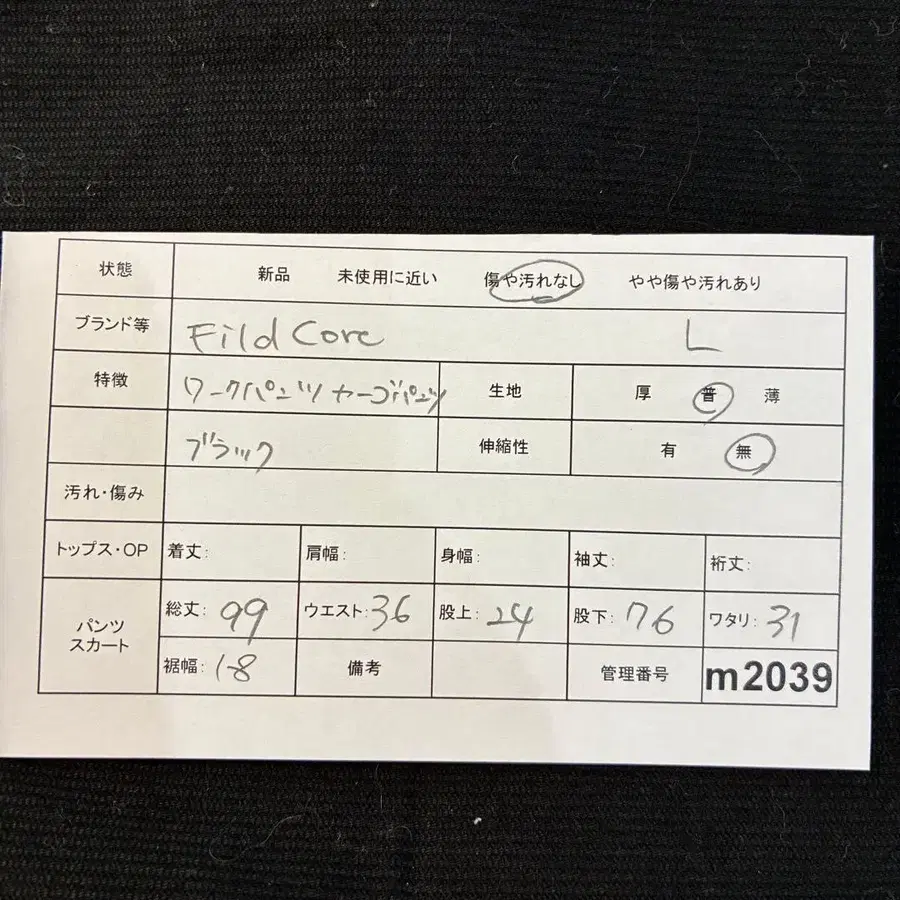 状態 新品 未使用に近い 傷や汚れなし やや傷や汚れあり
ブランド等 Fild Core L
特徴 ワークパンツ カーゴパンツ 生地 厚 普 薄
ブラック 伸縮性 有 無
汚れ・傷み
トップス・OP 着丈: 肩幅: 身幅: 袖丈: 裄丈:
パンツ スカート 総丈: 99 ウエスト: 36 股上: 24 股下: 76 ワタリ: 31
裾幅: 18 備考 管理番号 m2039